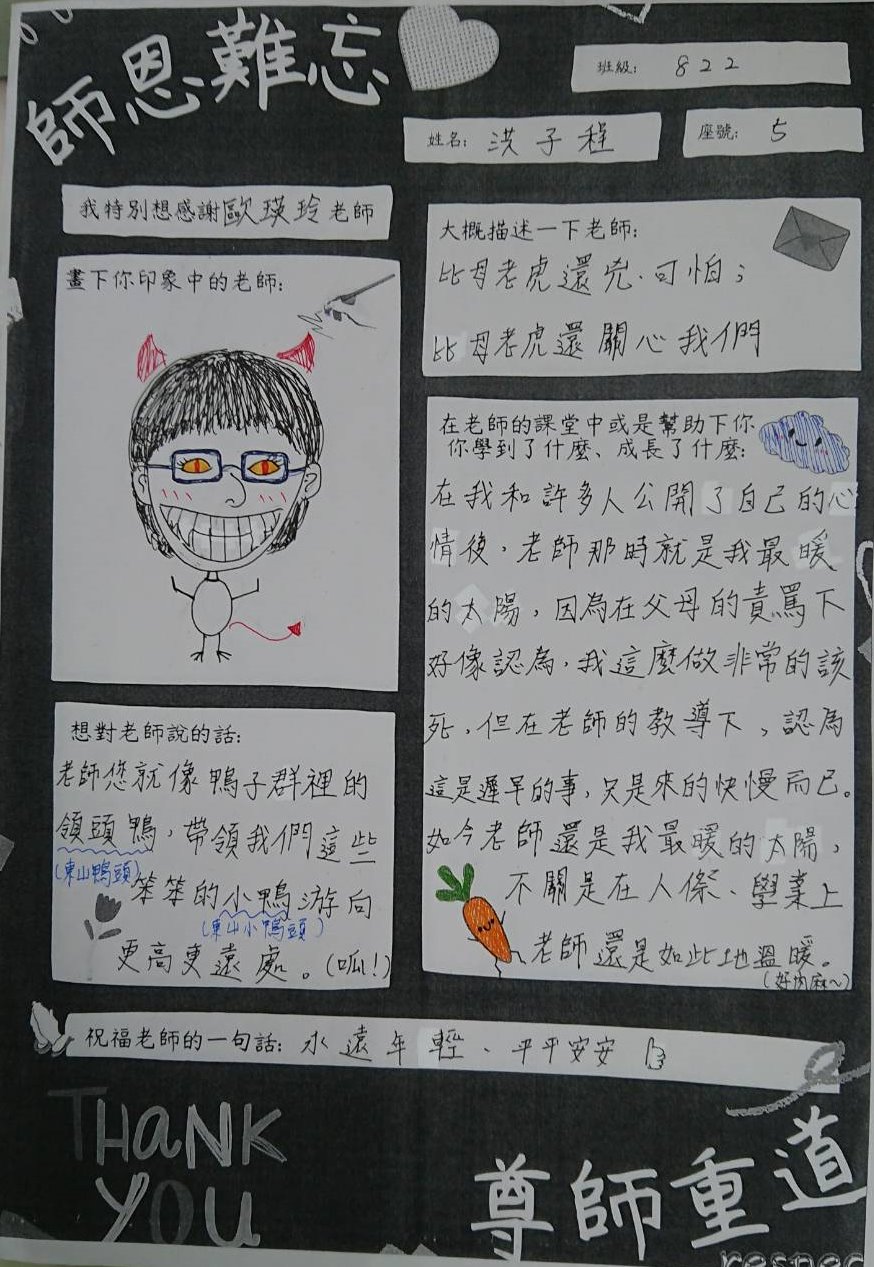 師恩難忘
班級: 822
姓名: 洪子程
座號: 5
我特別想感謝歐瑛玲老師
畫下你印象中的老師:
大概描述一下老師:
比母老虎還兇、可怕；
比母老虎還關心我們
在老師的課堂中或是幫助下你
你學到了什麼、成長了什麼:
在我和許多人公開了自己的心
情後，老師那時就是我最暖
的太陽，因為在父母的責罵下
好像認為，我這麼做非常的該
死，但在老師的教導下，認為
這是遲早的事，只是來的快慢而已。
如今老師還是我最暖的太陽，
不關是在人際、學業上
老師還是如此地溫暖。
(好肉麻~)
想對老師說的話:
老師您就像鴨子群裡的
領頭鴨，帶領我們這些
(東山鴨頭)
笨笨的小鴨游向
(東山小鴨頭)
更高更遠處。(呱!)
祝福老師的一句話: 永遠年輕、平平安安
THANK
YOU
尊師重道
respec